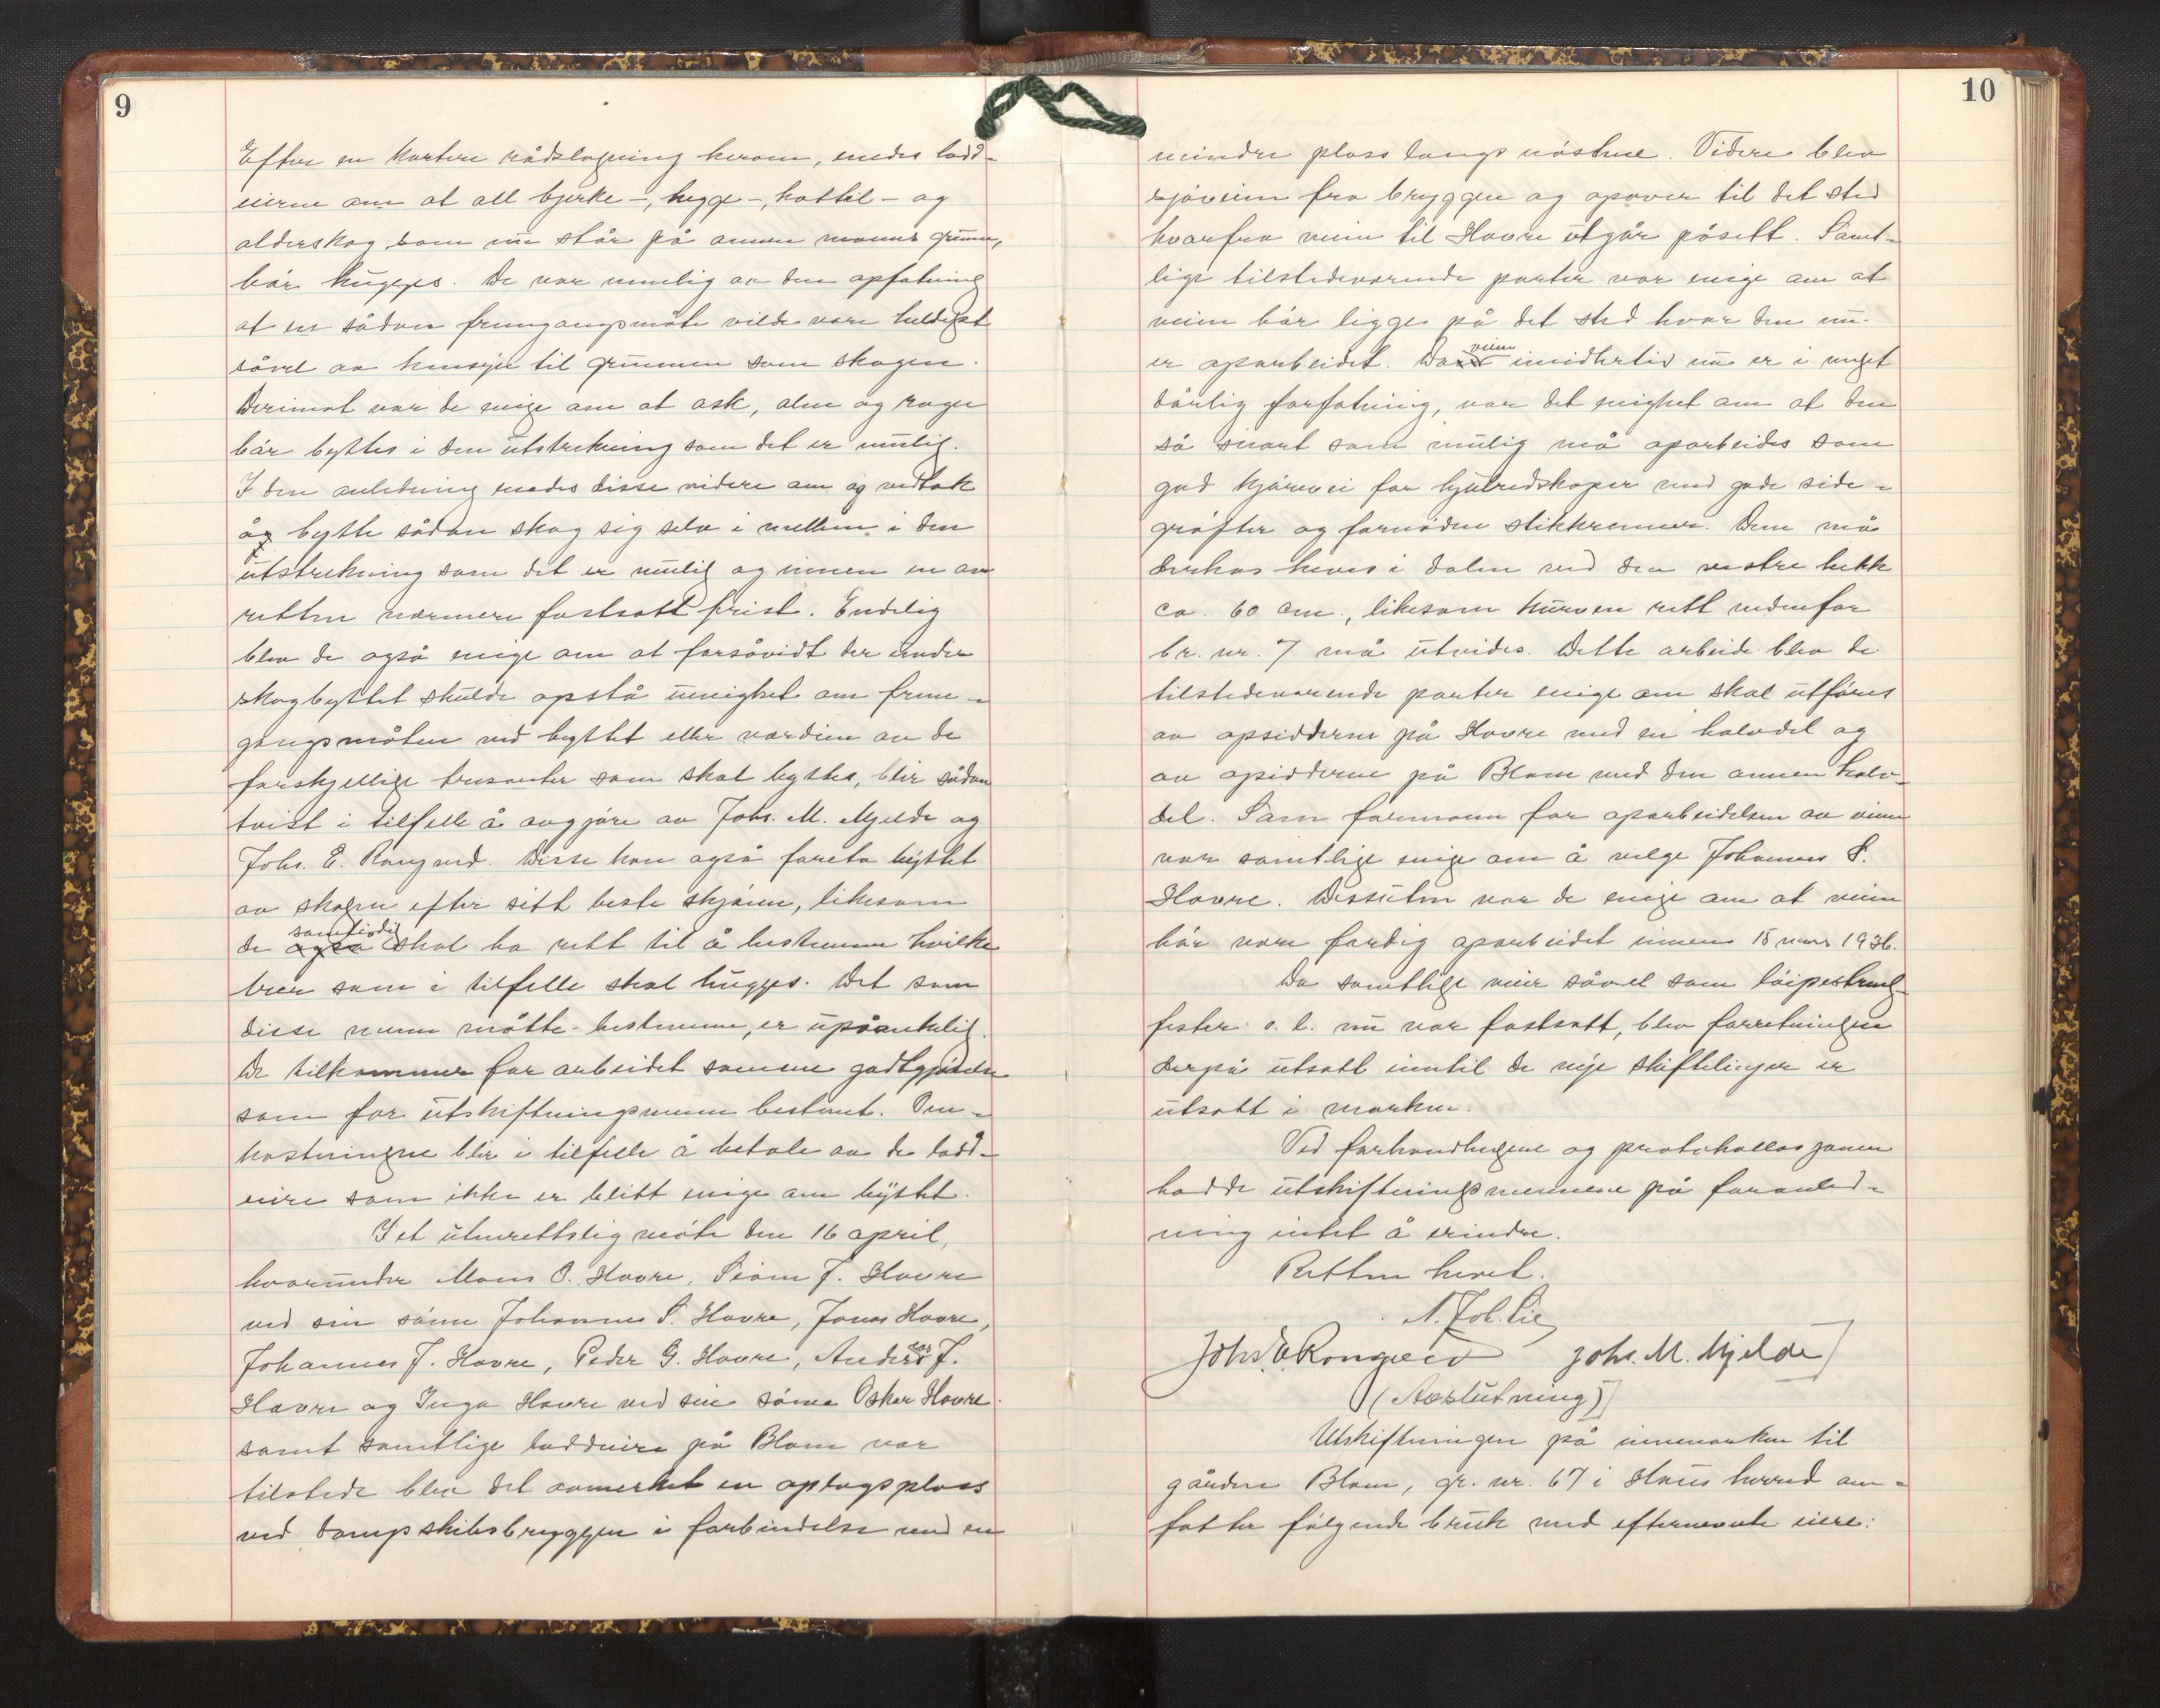 9
Efter en kortere rådslagning herom, enedes lodd-
eierne om at all bjerke-, hegge-, hattil- og
olderskog som nu står på annen manns grunn,
bør hugges. De var nemlig av den opfatning
at en sådan fremgangsmåte vilde være heldigst
såvel av hensyn til grunnen som skogen.
Derimot var de enige om at ask, alm og rogn
bør byttes i den utstrekning som det er mulig.
I den anledning enedes disse videre om og vedtok
å bytte sådan skog sig selv i mellem i den
utstrekning som det er mulig og innen en av
retten nærmere fastsatt frist. Endelig
blev de også enige om at forsåvidt der under
skogbyttet skulde opstå uenighet om frem-
gangsmåten ved byttet eller verdien av de
forskjellige tresorter som skal byttes, blir sådan
tvist i tilfelle å avgjøre av Johs. M. Mjelde og
Johs. E. Rongved. Disse kan også foreta byttet
av skogen efter sitt beste skjønn, likesom
samtidig
de også skal ha rett til å bestemme hvilke
trær som i tilfelle skal hugges. Det som
disse menn måtte bestemme, er upåankelig.
De tilkommer for arbeidet samme godtgjørelse
som for utskiftningsmenn bestemt. Om-
kostningene blir i tilfelle å betale av de lodd-
eiere som ikke er blitt enige om byttet.
I et utenrettslig møte den 16 april,
hvorunder Mons O. Havre, Simon J. Havre
ved sin sønn Johannes S. Havre, Jonas Havre,
Johannes J. Havre, Peder G. Havre, Anders J.
Havre og Inga Havre ved sin sønn Oskar Havre
samt samtlige loddeiere på Blom var
tilstede blev det avmerket en oplagsplass
ved dampskibsbryggen i forbindelse med en
10
mindre plass langs nøstene. Videre blev
sjøveien fra bryggen og opover til det sted
hvorfra veien til Havre utgår påsett. Samt-
lige tilstedeværende parter var enige om at
veien bør ligge på det sted hvor den nu
er oparbeidet. Da
veien
imidlertid nu er i meget
dårlig forfatning, var det enighet om at den
så snart som mulig må oparbeides som
god kjørevei for hjulredskaper med gode side-
grøfter og fornøden stikkrenner. Den må
derhos heves i dalen ved den vestre bekk
ca. 60 cm., likesom kurven rett nedenfor
br. nr. 7 må utvides. Dette arbeide blev de
tilstedeværende parter enige om skal utføres
av opsidderne på Havre med en halvdel og
av opsidderne på Blom med den annen halv-
del. Som formann for oparbeidelsen av veien
var samtlige enige om å velge Johannes S.
Havre. Dessuten var de enige om at veien
bør være ferdig oparbeidet innen 15 mars 1936.
Da samtlige veier såvel som løipestreng-
fester o. l. nu var fastsatt, blev forretningen
derpå utsatt inntil de nye skiftelinjer er
utsatt i marken.
Ved forhandlingene og protokollasjonen
hadde utskiftningsmennene på foranled-
ning intet å erindre.
Retten hevet.
N. Joh. Lie
Johs. E. Rongved Johs. M. Mjelde
(Avslutning)
Utskiftningen på innmarken til
gården Blom, gr. nr. 67 i Haus herred om-
fatter følgende bruk med efternevnte eiere: